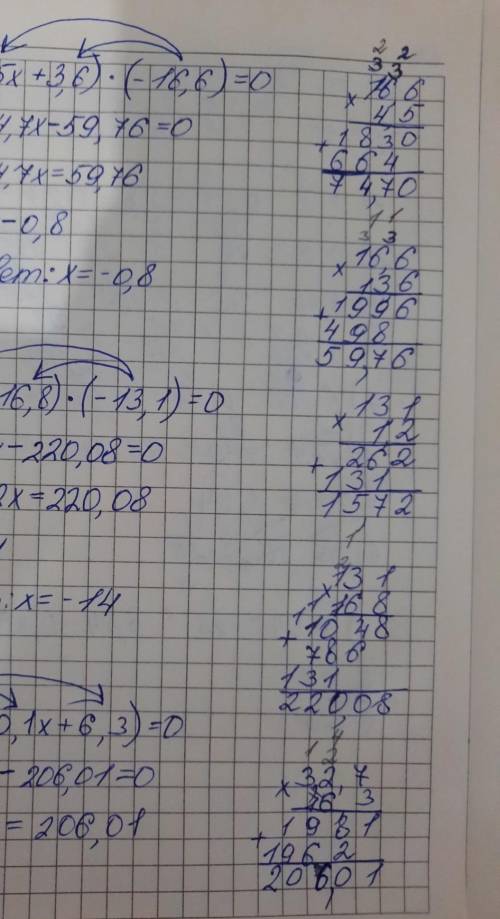 5x+3,6)·(-16,6)=0
4,7x-59,76=0
4,7x=59,76
-0,8
вет: x=-0,8
16,8)·(-13,1)=0
-220,08=0
2x=220,08
: x=-14
0,1x+6,3)=0
-206,01=0
= 206,01
2 2
3 3
16 6
× 4,5
+ 1 8 3 0
6 6 4
7 4,7 0
1 1
3 3
× 16,6
1 3 6
+ 1 9 9 6
4 9 8
5 9,7 6
× 1 3 1
1 2
+ 2 6 2
1 3 1
1 5 7 2
1
2
× 1 3 1
1 1 1 6 8
+ 10 4 8
7 8 6
1 3 1
2 2 0 0 8
1 2
× 3 2, 7
6 3
+ 1 9 8 1
1 9 6 2
2 0 6,0 1
1